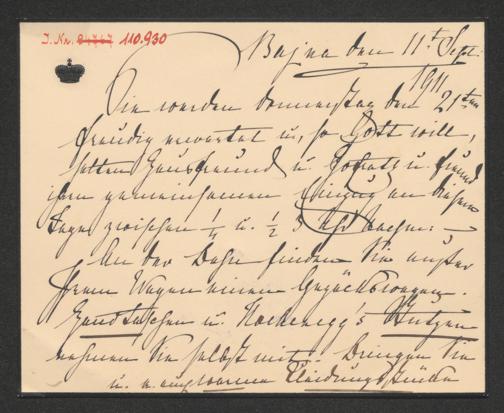 J. Nr. 110.930
Bajna den 11t Sept.
1911
Sie werden donnerstag den 21ten
freudig erwartet u, so Gott will,
Hausfreund u. u. Hund
ihren gemeinsamen Einzug an diesem
Tage zwischen 1/4 u. 1/2 5 Uhr machen. –
An der Bahn finden Sie außer
Ihrem Wagen einen Gepäckswagen.
Handtaschen u. Stutzen
nehmen Sie selbst mit. Bringen Sie
u. a. warme Kleidungsstücke